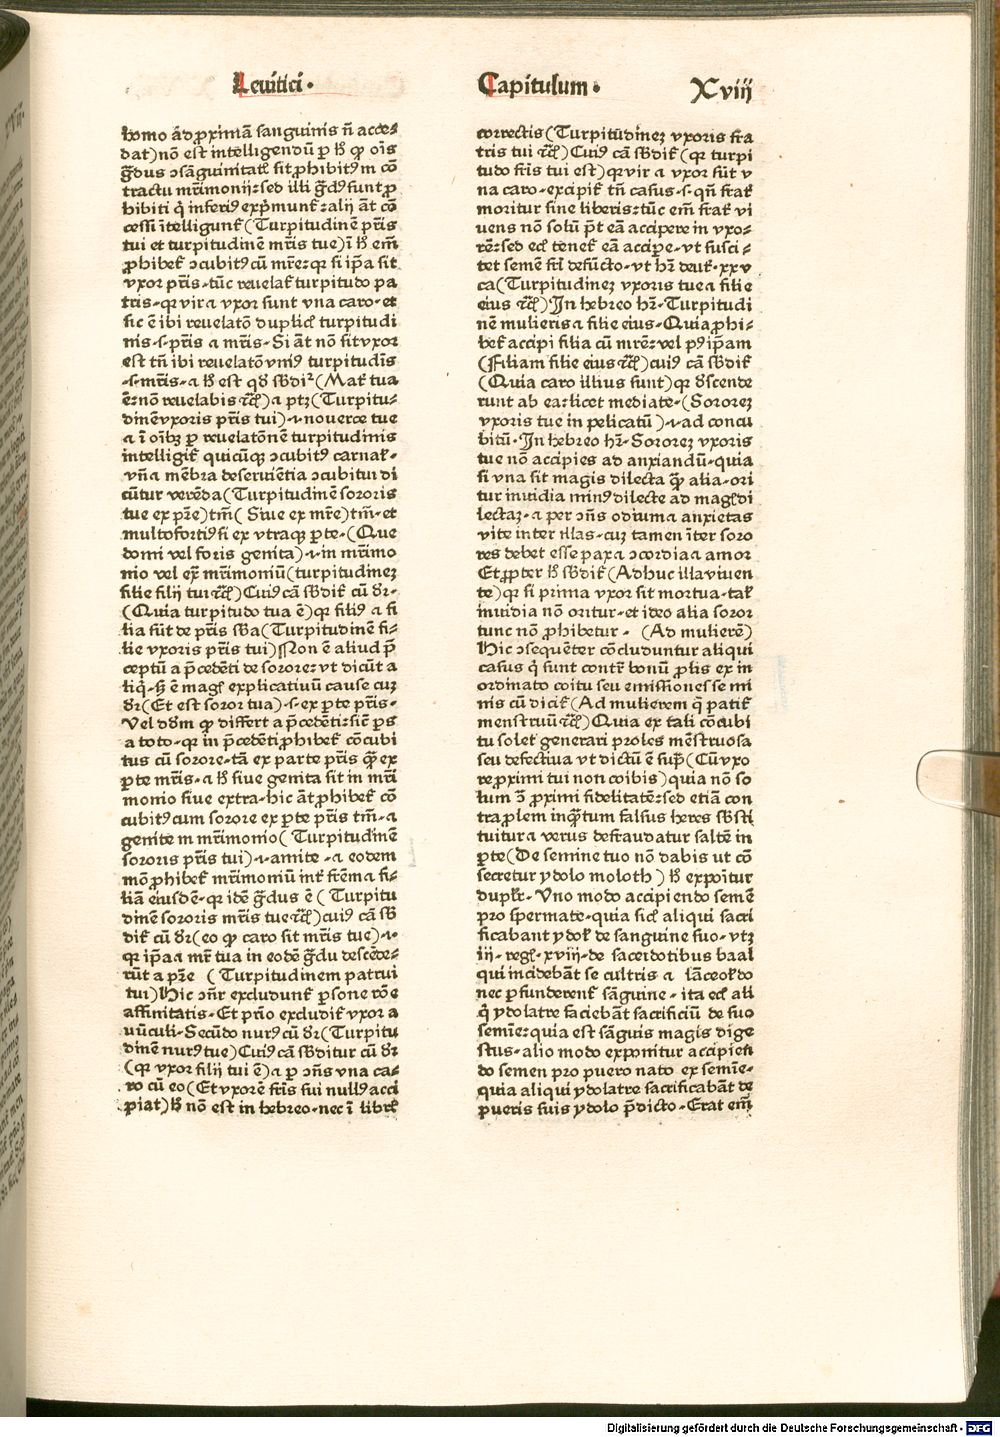 Leuitici.
Capitulum. Xviij
homo ad proximā sanguinis nō acce-
dat)nō est intelligendū p̱ hͦ q̱ oīs
g̃dus ↄsāguinitatꝭ sit ꝓhibitꝰ in cō
tractu mr̄imonij: sed illi g̃dꝰ sunt ꝓ
hibiti qͥ inferiꝰ exp̄munt᷑: alij āt cō
cessi ītelligunt᷑ (Turpitudinē pr̄is
tui et turpitudinē mr̄is tue)ī hͦ em̄
ꝓhibet᷑ ↄcubitꝰ cū mr̄e: qꝛ si ip̄a sit
vxor pr̄is. tūc reuelat᷑ turpitudo pa
tris. qꝛ vir ⁊ vxor sunt vna caro. et
sic ē ibi reuelatō duplicꝭ turpitudi
nis .s. pr̄is ⁊ mr̄is. Si āt nō sit vxor
est tn̄ ibi reuelatō vniꝰ turpitudīs
.s. mr̄is. ⁊ hͦ est qd̓ sb̓dit᷑(Mat̓ tua
ē: nō reuelabis ⁊cꝭ)⁊ ptꝫ(Turpitu-
dinē vxoris pr̄is tui).i. nouerce tue
⁊ ī oībꝫ p̱ reuelatōnē turpitudinis
intelligit᷑ quicūqꝫ ↄcubitꝰ carnal̓.
vn̄ ⁊ mēbra deseruientia ↄcubitui di
cūtur verēda(Turpitudinē sororis
tue ex pr̄e)tm̄( Siue ex mr̄e)tm̄. et
multofortiꝰ si ex vtraqꝫ p̱te.(Que
domi vel foris genita).i. in mr̄imo
nio vel ex̄ mr̄imoniū(turpitudineꝫ
filie filij tui ⁊cꝭ)Cuiꝰ cā sb̓dit᷑ cū d̓r.
(Quia turpitudo tua ē)qꝛ filiꝰ ⁊ fi
lia sūt de pr̄is sb̓a(Turpitudinē fi-
lie vxoris pr̄is tui)Non ē aliud p̄
ceptū a p̄cedēti de sorore: vt dicūt a
liqͥ. sꝫ ē magꝭ explicatiuū cause cuꝫ
d̓r(Et est soror tua).s. ex p̱te pr̄is.
Vel dd̓m q̱ differt a p̄cedēti: sic̄ p̱s
a toto. qꝛ in p̄cedēti ꝓhibet᷑ cōcubi
tus cū sorore. tā ex parte pr̄is qꝫ ex
p̱te mr̄is. ⁊ hͦ siue genita sit in mr̄i
monio siue extra. hic āt ꝓhibet᷑ cō
cubitꝰ cum sorore ex p̱te pr̄is tm̄. ⁊
genite in mr̄imonio( Turpitudinē
sororis pr̄is tui).i. amite. ⁊ eodem
mō ꝓhibet᷑ mr̄imoniū int̓ frēm ⁊ fi-
liā eiusdē. qꝛ idē g̃dus ē ( Turpitu
dinē sororis mr̄is tue ⁊cꝭ)cuiꝰ cā sb̓
dit᷑ cū d̓r(eo q̱ caro sit mr̄is tue).i.
qꝛ ip̄a ⁊ mr̄ tua in eodē g̃du descēde-
rūt a pr̄e ( Turpitudinem patrui
tui)Hic ↄn̄r excludunt᷑ p̱sone rōe
affinitatis. Et prīo excludit᷑ vxor a
uūculi. Secūdo nurꝰ cū d̓r(Turpitu
dinē nurꝰ tue)Cuiꝰ cā sb̓ditur cū d̓r
(qꝛ vxor filij tui ē)⁊ p̱ ↄn̄s vna ca-
ro cū eo(Et vxorē fr̄is sui nullꝰ acci
piat)hͦ nō est in hebreo. nec ī libr̓
correctis(Turpitūdineꝫ vxoris fra
tris tui ⁊cꝭ)Cuiꝰ cā sb̓dit᷑(qꝛ turpi
tudo fr̄is tui est)qꝛ vir ⁊ vxor sūt v
na caro. excipit᷑ tn̄ casus .s. qn̄ frat̓
moritur sine liberis: tūc em̄ frat̓ vi
uens nō solū p̄t eā accipere in vxo-
rē: sed ecꝭ tenet᷑ eā accipe̱. vt susci-
tet semē fr̄i defūcto. vt hr̄ deut̓. xxv
ca(Turpitudineꝫ vxoris tue ⁊ filie
eius ⁊cꝭ)In hebreo hr̄. Turpitudi
nē mulieris ⁊ filie eius. Quia ꝓhi-
bet᷑ accipi filia cū mr̄e: vel pꝰ ip̄am
(Filiam filie eius ⁊cꝭ)cuiꝰ cā sb̓dit᷑
(Quia caro illius sunt)qꝛ d̓scende
runt ab ea: licet mediate.(Sororeꝫ
vxoris tue in pelicatū ).i. ad concu
bitū. In hebreo hr̄. Sororeꝫ vxoris
tue nō accipies ad anxiandū. quia
si vna sit magis dilecta qꝫ alia. ori
tur inuidia minꝰ dilecte ad magꝭ di
lectaꝫ. ⁊ per ↄn̄s odium ⁊ anxietas
vite inter illas. cuꝫ tamen īter soro
res debet esse pax ⁊ ↄcordia ⁊ amor
Et ꝓpter hͦ sb̓dit᷑ (Adhuc illa viuen
te)qꝛ si prima vxor sit mortua. tal̓
inuidia nō oritur. et ideo alia soror
tunc nō ꝓhibetur. (Ad mulierē)
Hic ↄsequēter cōcluduntur aliqui
casus qͥ sunt contr̄ bonū ꝓlis ex in
ordinato coitu seu emissiones semi
nis cū dicit᷑(Ad mulierem q̄ patit᷑
menstruū ⁊cꝭ)Quia ex tali cōcubi
tu solet generari proles mēstruosa
seu defectiua vt dictū ē supͣ(Cū vxo
re ꝓximi tui non coibis)quia nō so
lum ꝯ ꝓximi fidelitatē: sed etiā con
tra ꝓlem inqꝫtum falsus heres sb̓sti
tuitur ⁊ verus defraudatur saltē in
p̱te(De semine tuo nō dabis ut cō
secretur ydolo moloth ) hͦ exponitur
duplr̄. Vno modo accipiendo semē
pro spermate. quia sicꝭ aliqui sacri
ficabant ydol̓ de sanguine suo. vtꝫ
iij. regꝭ. xviij. de sacerdotibus baal
qui incidebāt se cultris ⁊ lāceol̓ do
nec ꝑfunderent᷑ sāguine. ita ecꝭ ali
qͥ ydolatre faciebāt sacrificiū de suo
semīe: quia est sāguis magis dige
stus. alio modo exponitur accipien
do semen pro puero nato ex semīe.
quia aliqui ydolatre sacrificabāt de
pueris suis ydolo p̄dicto. Erat em̄
Digitalisierung gefördert durch die Deutsche Forschungsgemeinschaft - DFG